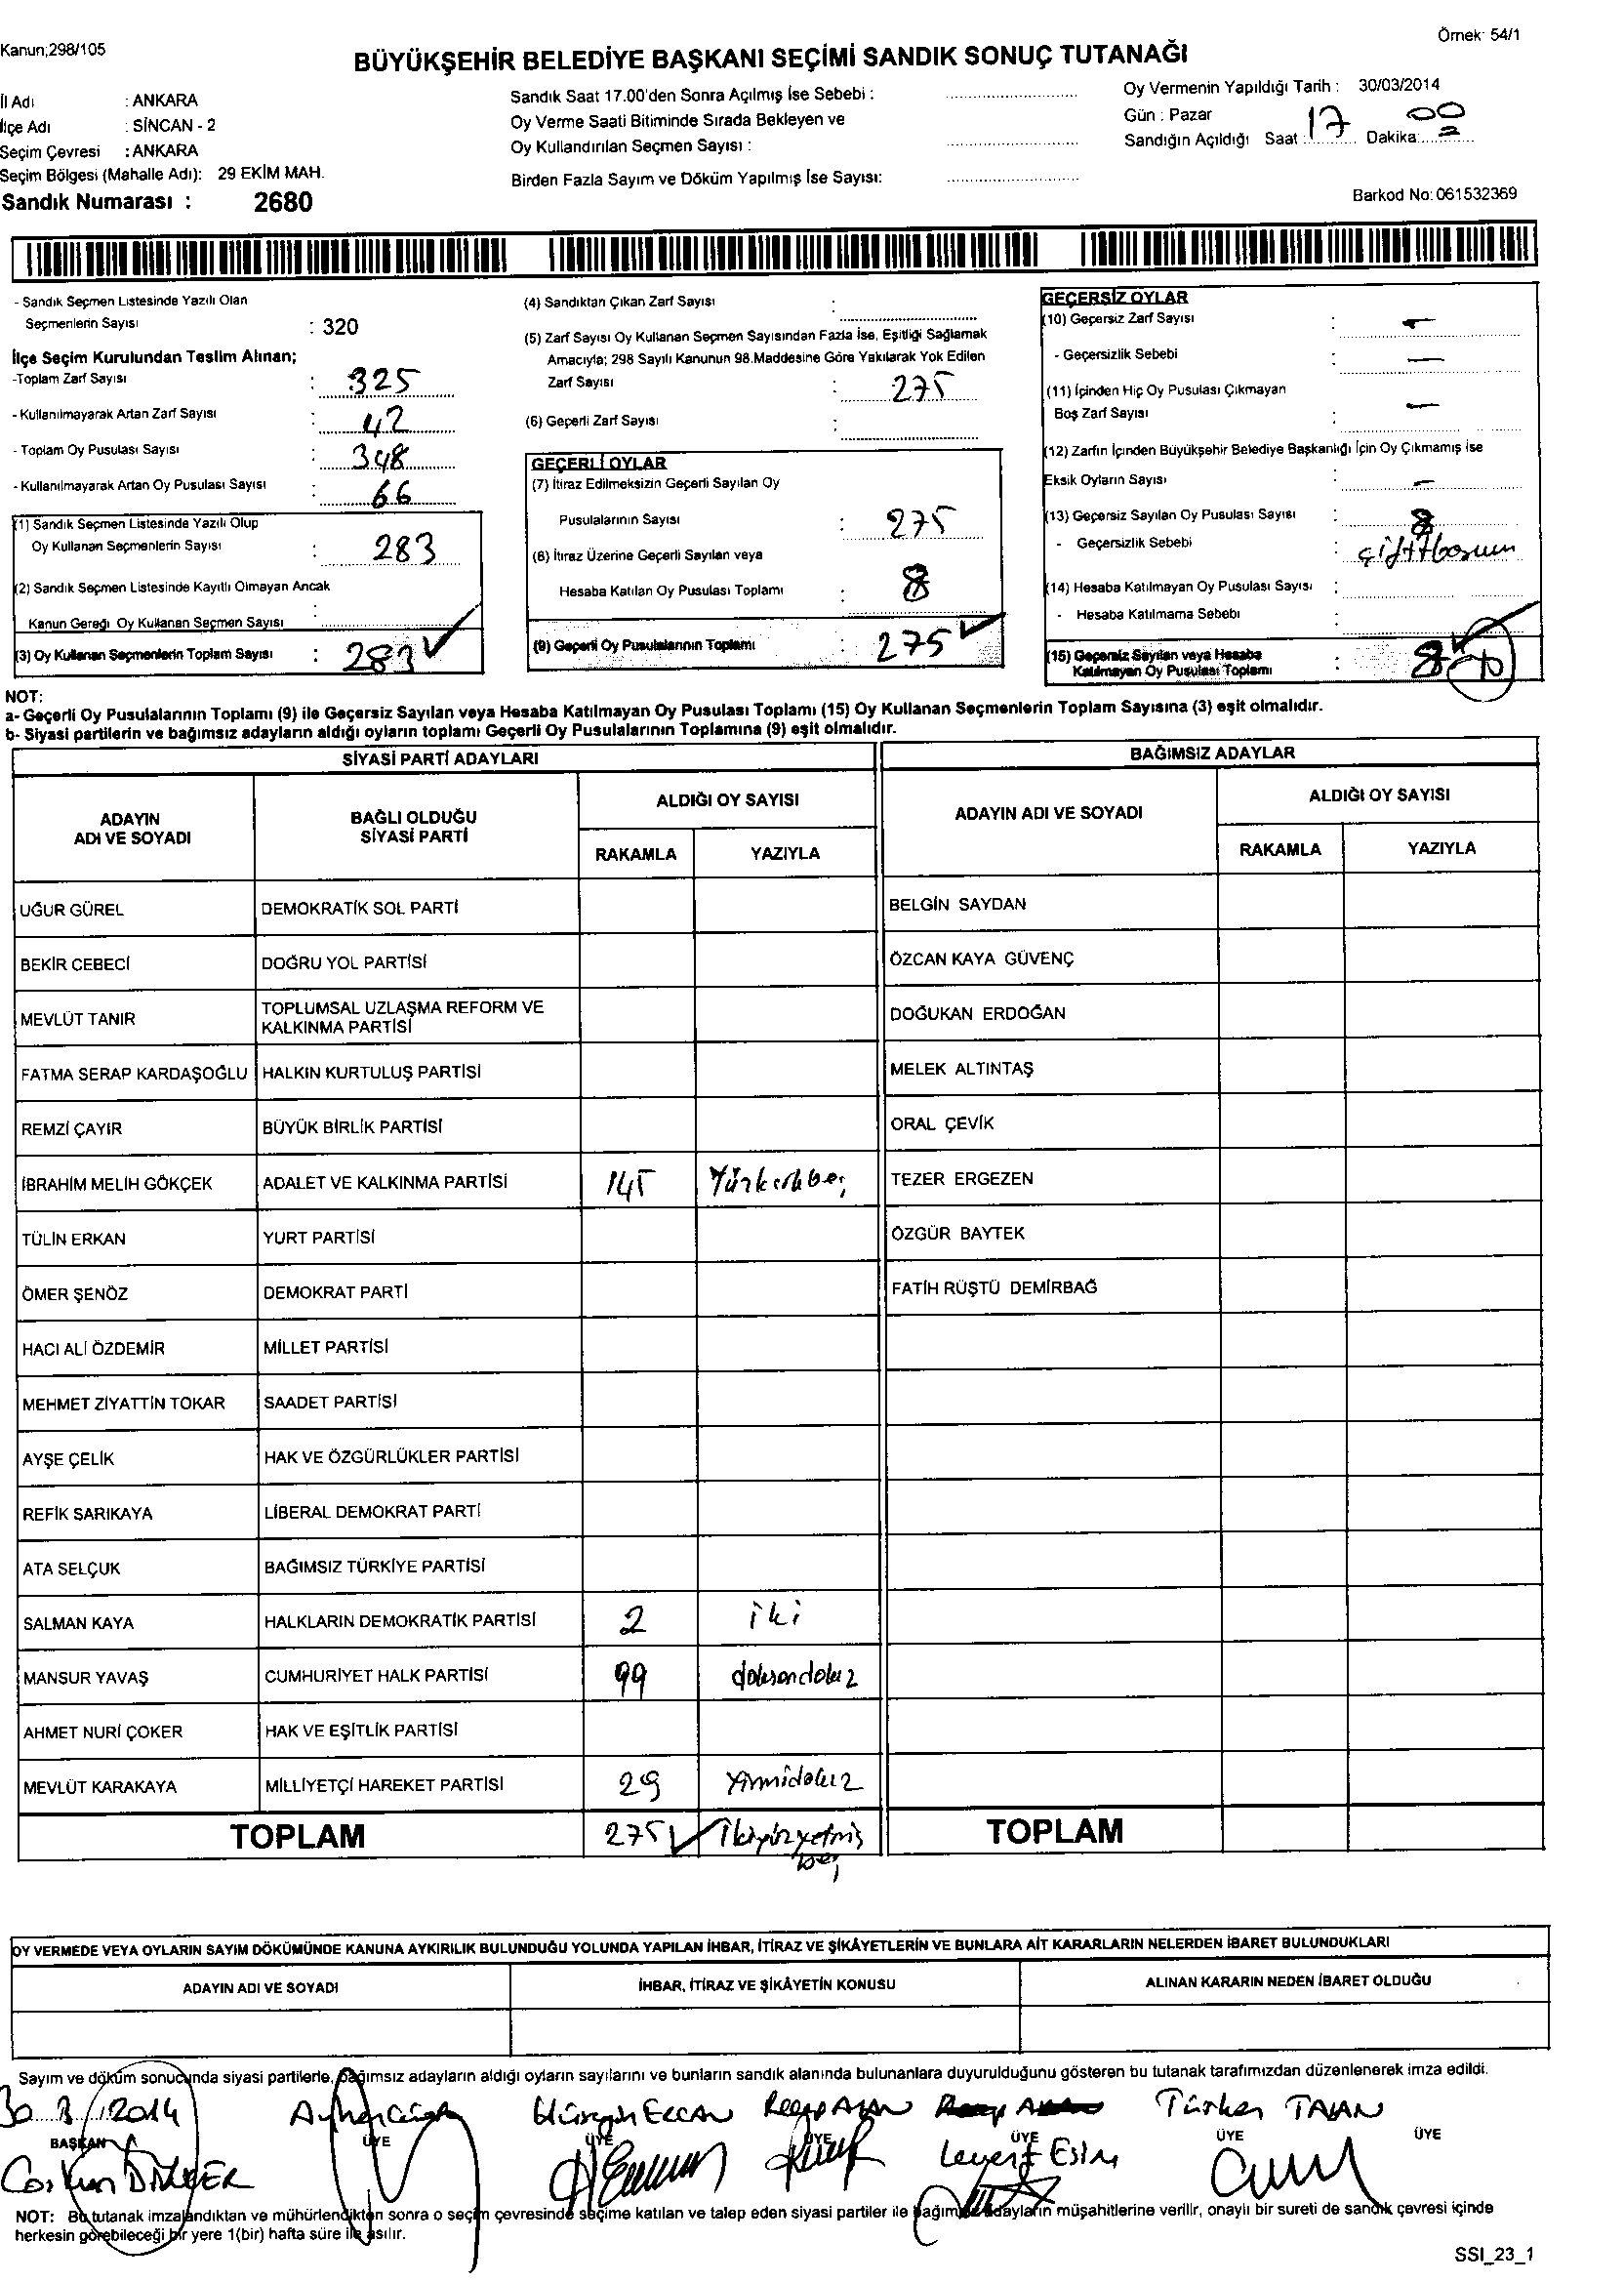 Kanun;298/105
Örnek: 54/1
BÜYÜKŞEHİR BELEDİYE BAŞKANI SEÇİMİ SANDIK SONUÇ TUTANAĞI
İl Adı : ANKARA
İlçe Adı : SİNCAN - 2
Seçim Çevresi : ANKARA
Seçim Bölgesi (Mahalle Adı): 29 EKİM MAH.
Sandık Numarası : 2680
Sandık Saat 17.00'den Sonra Açılmış İse Sebebi :
Oy Verme Saati Bitiminde Sırada Bekleyen ve
Oy Kullandırılan Seçmen Sayısı :
Birden Fazla Sayım ve Döküm Yapılmış İse Sayısı:
Oy Vermenin Yapıldığı Tarih : 30/03/2014
Gün : Pazar
Sandığın Açıldığı Saat : 17 Dakika: 00
Barkod No: 061532369
- Sandık Seçmen Listesinde Yazılı Olan
Seçmenlerin Sayısı : 320
İlçe Seçim Kurulundan Teslim Alınan;
-Toplam Zarf Sayısı : 325
- Kullanılmayarak Artan Zarf Sayısı : 42
- Toplam Oy Pusulası Sayısı : 348
- Kullanılmayarak Artan Oy Pusulası Sayısı : 66
(1) Sandık Seçmen Listesinde Yazılı Olup
Oy Kullanan Seçmenlerin Sayısı : 283
(2) Sandık Seçmen Listesinde Kayıtlı Olmayan Ancak
Kanun Gereği Oy Kullanan Seçmen Sayısı :
(3) Oy Kullanan Seçmenlerin Toplam Sayısı : 283
(4) Sandıktan Çıkan Zarf Sayısı :
(5) Zarf Sayısı Oy Kullanan Seçmen Sayısından Fazla İse, Eşitliği Sağlamak
Amacıyla; 298 Sayılı Kanunun 98.Maddesine Göre Yakılarak Yok Edilen
Zarf Sayısı : 275
(6) Geçerli Zarf Sayısı :
GEÇERLİ OYLAR
(7) İtiraz Edilmeksizin Geçerli Sayılan Oy
Pusulalarının Sayısı : 275
(8) İtiraz Üzerine Geçerli Sayılan veya
Hesaba Katılan Oy Pusulası Toplamı : 8
(9) Geçerli Oy Pusulalarının Toplamı : 275
GEÇERSİZ OYLAR
(10) Geçersiz Zarf Sayısı : –
- Geçersizlik Sebebi : –
(11) İçinden Hiç Oy Pusulası Çıkmayan
Boş Zarf Sayısı : –
(12) Zarfın İçinden Büyükşehir Belediye Başkanlığı İçin Oy Çıkmamış ise
Eksik Oyların Sayısı : –
(13) Geçersiz Sayılan Oy Pusulası Sayısı : 8
- Geçersizlik Sebebi :
(14) Hesaba Katılmayan Oy Pusulası Sayısı :
- Hesaba Katılmama Sebebi :
(15) Geçersiz Sayılan veya Hesaba
Katılmayan Oy Pusulası Toplamı : 8
NOT:
a- Geçerli Oy Pusulalarının Toplamı (9) ile Geçersiz Sayılan veya Hesaba Katılmayan Oy Pusulası Toplamı (15) Oy Kullanan Seçmenlerin Toplam Sayısına (3) eşit olmalıdır.
b- Siyasi partilerin ve bağımsız adayların aldığı oyların toplamı Geçerli Oy Pusulalarının Toplamına (9) eşit olmalıdır.
SİYASİ PARTİ ADAYLARI BAĞIMSIZ ADAYLAR
ADAYIN
ADI VE SOYADI
BAĞLI OLDUĞU
SİYASİ PARTİ
ALDIĞI OY SAYISI
RAKAMLA YAZIYLA
ADAYIN ADI VE SOYADI
ALDIĞI OY SAYISI
RAKAMLA YAZIYLA
UĞUR GÜREL DEMOKRATİK SOL PARTİ BELGİN SAYDAN
BEKİR CEBECİ DOĞRU YOL PARTİSİ ÖZCAN KAYA GÜVENÇ
MEVLÜT TANIR TOPLUMSAL UZLAŞMA REFORM VE
KALKINMA PARTİSİ DOĞUKAN ERDOĞAN
FATMA SERAP KARDAŞOĞLU HALKIN KURTULUŞ PARTİSİ MELEK ALTINTAŞ
REMZİ ÇAYIR BÜYÜK BİRLİK PARTİSİ ORAL ÇEVİK
İBRAHİM MELİH GÖKÇEK ADALET VE KALKINMA PARTİSİ 145 Yüzkırkbeş TEZER ERGEZEN
TÜLİN ERKAN YURT PARTİSİ ÖZGÜR BAYTEK
ÖMER ŞENÖZ DEMOKRAT PARTİ FATİH RÜŞTÜ DEMİRBAĞ
HACI ALİ ÖZDEMİR MİLLET PARTİSİ
MEHMET ZİYATTİN TOKAR SAADET PARTİSİ
AYŞE ÇELİK HAK VE ÖZGÜRLÜKLER PARTİSİ
REFİK SARIKAYA LİBERAL DEMOKRAT PARTİ
ATA SELÇUK BAĞIMSIZ TÜRKİYE PARTİSİ
SALMAN KAYA HALKLARIN DEMOKRATİK PARTİSİ 2 iki
MANSUR YAVAŞ CUMHURİYET HALK PARTİSİ 99 doksandokuz
AHMET NURİ ÇOKER HAK VE EŞİTLİK PARTİSİ
MEVLÜT KARAKAYA MİLLİYETÇİ HAREKET PARTİSİ 29 Yirmidokuz
TOPLAM 275 İkiyüzyetmiş
beş
TOPLAM
OY VERMEDE VEYA OYLARIN SAYIM DÖKÜMÜNDE KANUNA AYKIRILIK BULUNDUĞU YOLUNDA YAPILAN İHBAR, İTİRAZ VE ŞİKÂYETLERİN VE BUNLARA AİT KARARLARIN NELERDEN İBARET BULUNDUKLARI
ADAYIN ADI VE SOYADI İHBAR, İTİRAZ VE ŞİKÂYETİN KONUSU ALINAN KARARIN NEDEN İBARET OLDUĞU
Sayım ve döküm sonucunda siyasi partilerle, bağımsız adayların aldığı oyların sayılarını ve bunların sandık alanında bulunanlara duyurulduğunu gösteren bu tutanak tarafımızdan düzenlenerek imza edildi.
30 3 /2014 ERCAN Recep Türker TALAN
BAŞKAN ÜYE ÜYE ÜYE ÜYE ÜYE ÜYE
NOT: Bu tutanak imzalandıktan ve mühürlendikten sonra o seçim çevresinde seçime katılan ve talep eden siyasi partiler ile bağımsız adayların müşahitlerine verilir, onaylı bir sureti de sandık çevresi içinde
herkesin görebileceği bir yere 1(bir) hafta süre ile asılır.
SSI_23_1